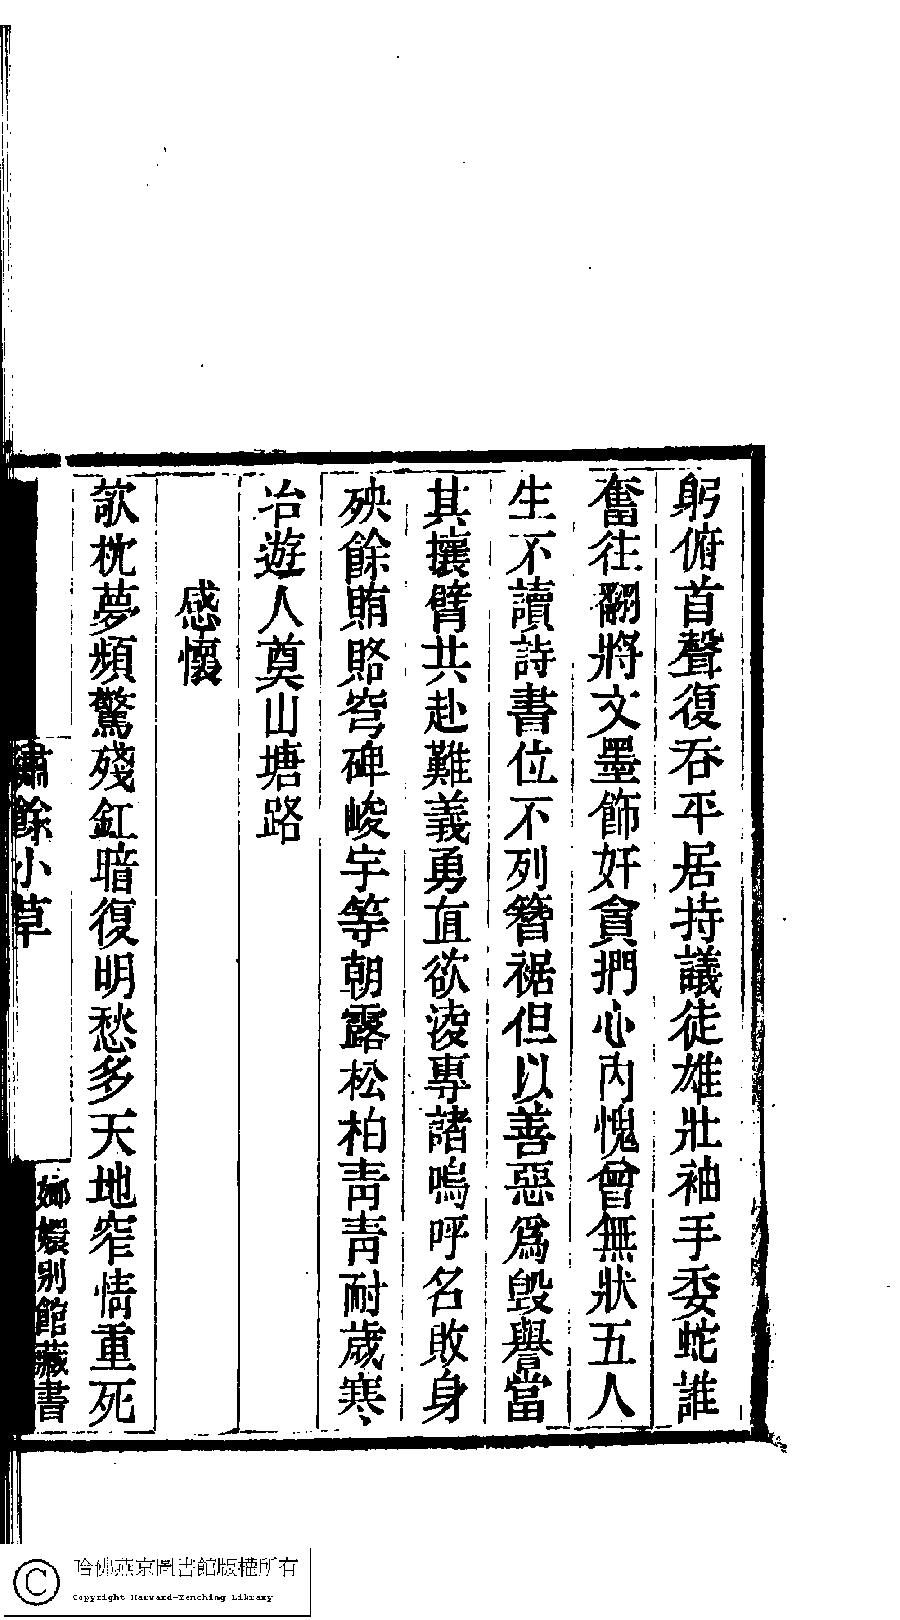 躬俯首聲復吞平居持議徒雄壯袖手委蛇誰
奮往翻將文墨飾奸貪捫心內愧曾無狀五人
生不讀詩書位不列簪裾但以善惡爲毀譽當
其攘臂共赴難義勇直欲淩專諸嗚呼名敗身
殃餘賄賂穹碑峻宇等朝露松柏靑靑耐歲寒
冶遊人奠山塘路
感懷
欹枕夢頻驚殘釭暗復明愁多天地窄情重死
繡餘小草
嫏嬛別館藏書
哈佛燕京圖書館版權所有
Copyright Harvard-Yenching Library